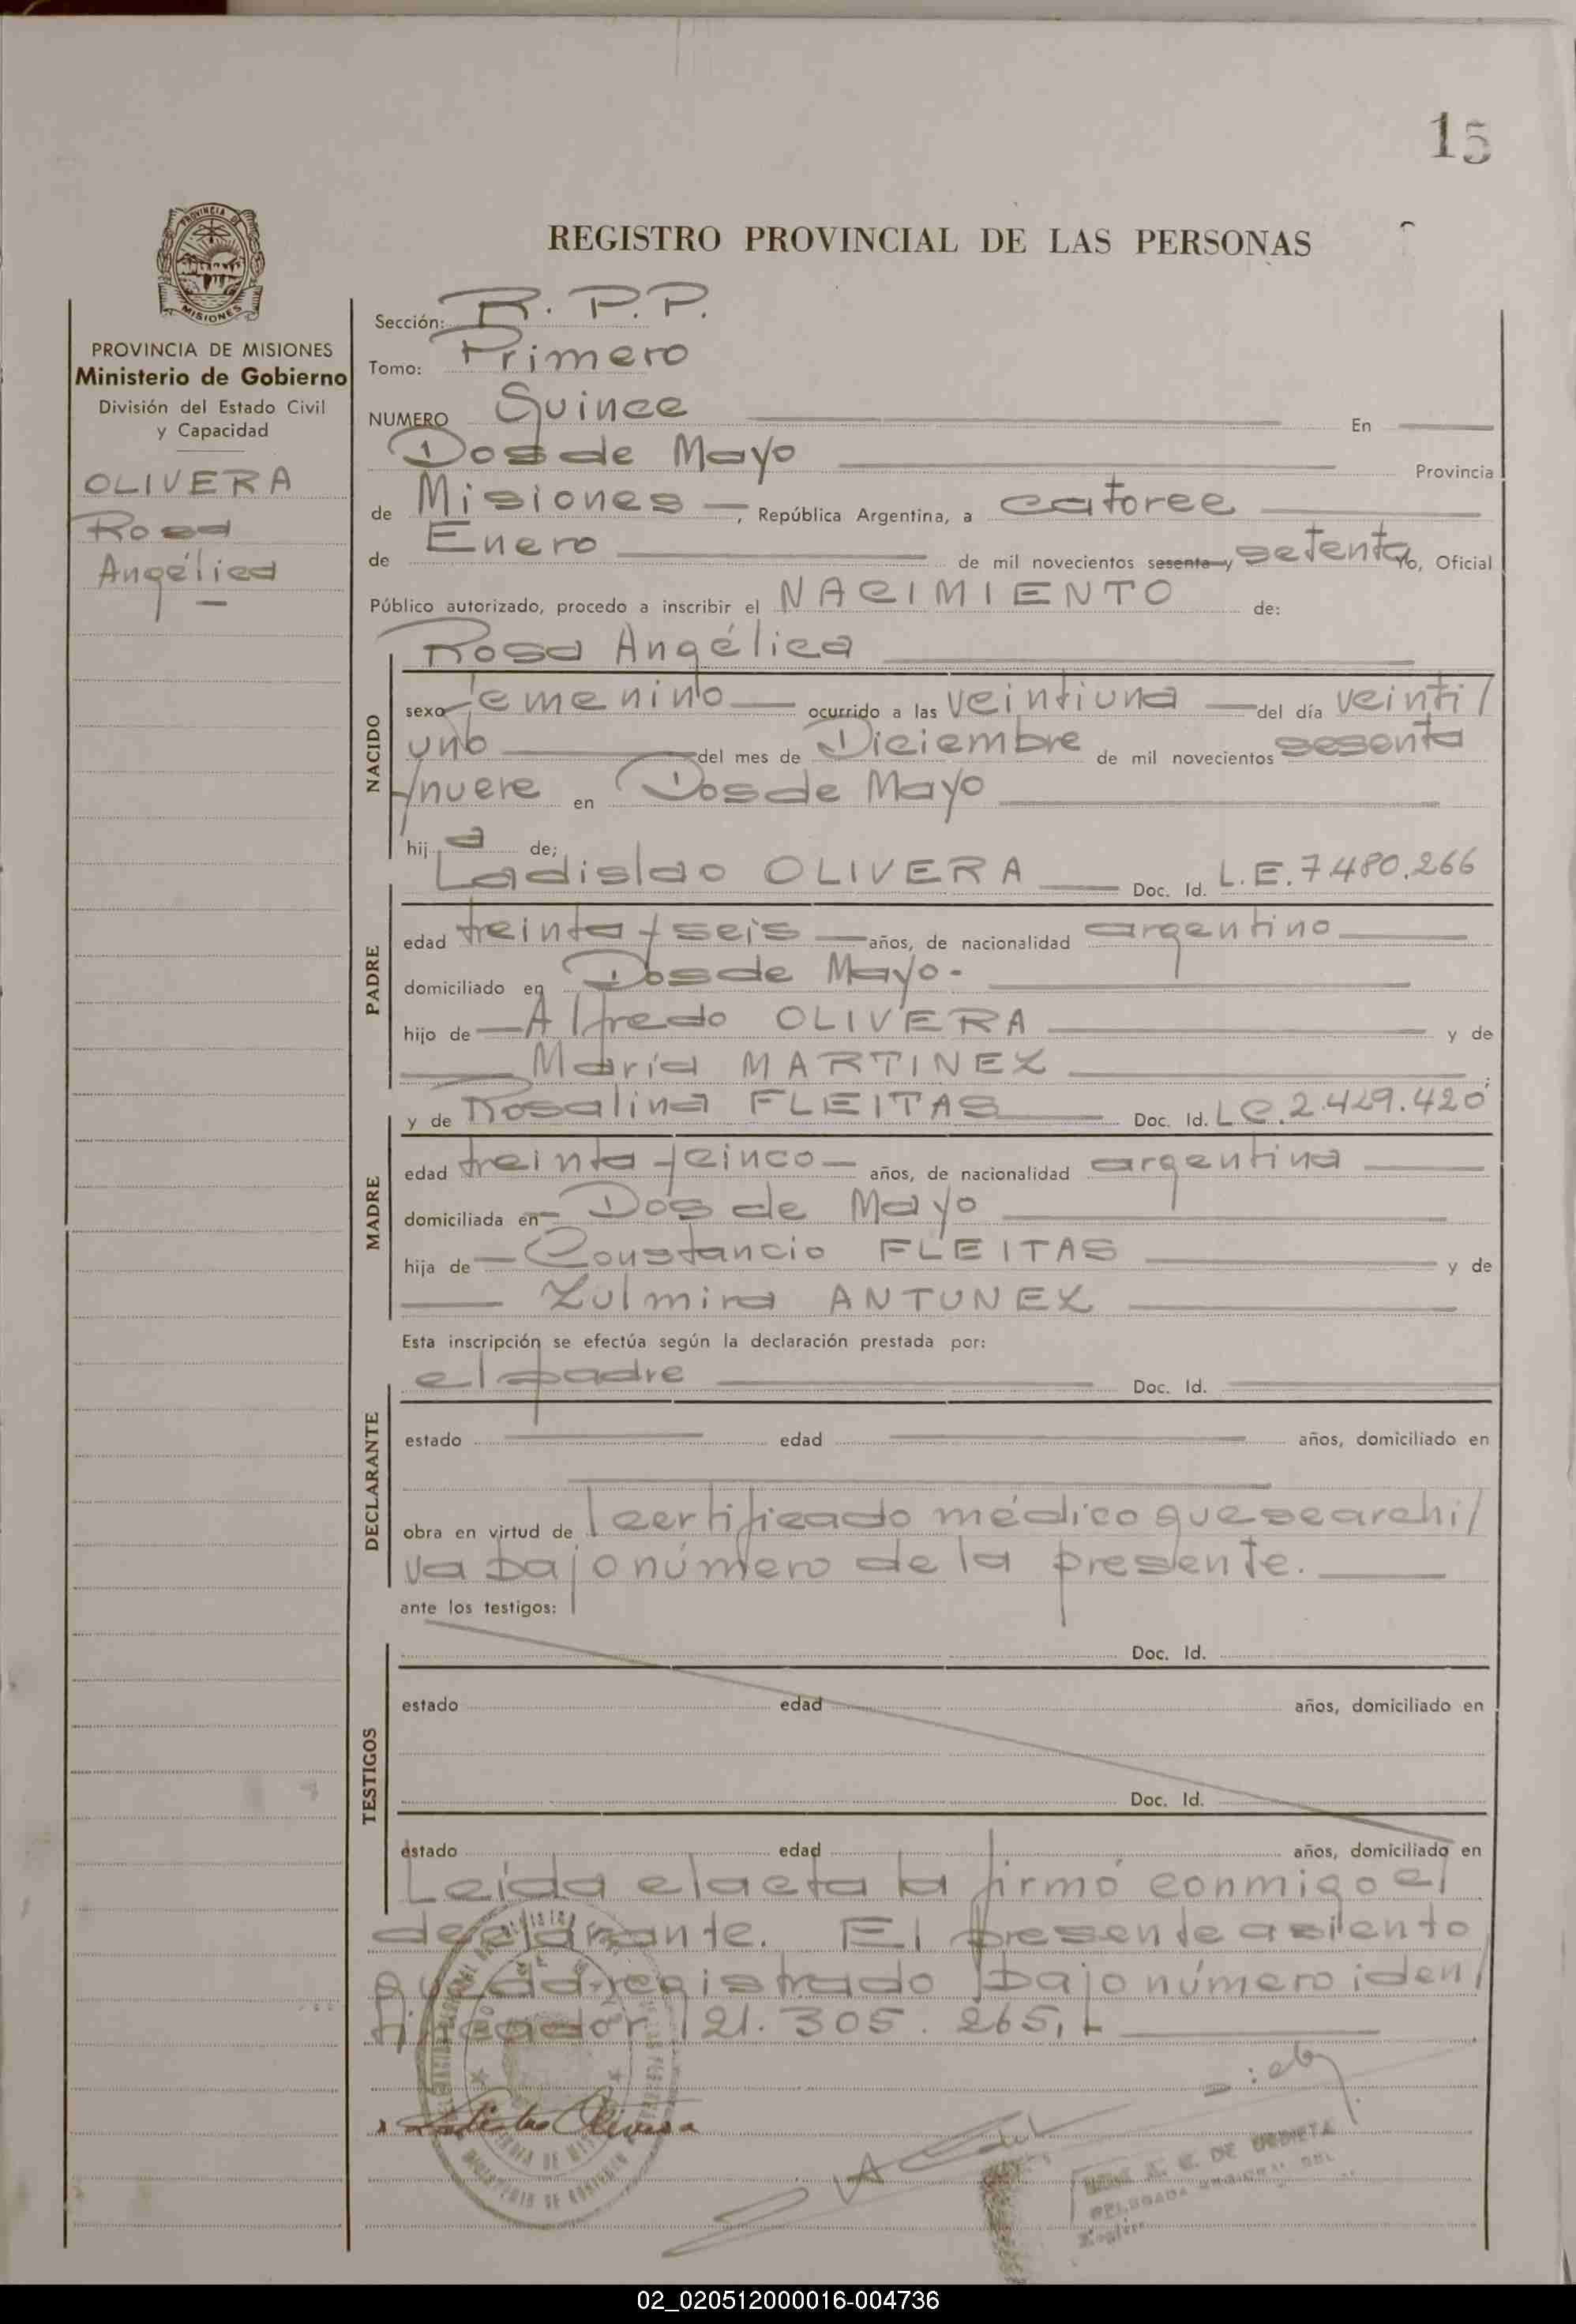 15
PROVINCIA DE
MISIONES
REGISTRO PROVINCIAL DE LAS PERSONAS
PROVINCIA DE MISIONES
Ministerio de Gobierno
División del Estado Civil
y Capacidad
OLIVERA
Rosa
Angélica
Sección: R. P. P.
Tomo: Primero
NUMERO Quince En
Dos de Mayo Provincia
de Misiones —, República Argentina, a catorce
de Enero de mil novecientos sesenta y setenta, Oficial
Público autorizado, procedo a inscribir el NACIMIENTO de:
Rosa Angélica
NACIDO
sexo femenino ocurrido a las veintiuna del día veinti/
uno del mes de Diciembre de mil novecientos sesenta
y nueve en Dos de Mayo
hij a de;
Ladislao OLIVERA Doc. Id. L.E. 7.480.266
PADRE
edad treinta y seis años, de nacionalidad argentino
domiciliado en Dos de Mayo.-
hijo de Alfredo OLIVERA y de
María MARTINEZ
y de Rosalina FLEITAS Doc. Id. L.C. 2.429.420
MADRE
edad treinta y cinco años, de nacionalidad argentina
domiciliada en Dos de Mayo
hija de Constancio FLEITAS y de
Zulmira ANTUNEZ
Esta inscripción se efectúa según la declaración prestada por:
el padre Doc. Id.
DECLARANTE
estado edad años, domiciliado en
obra en virtud de certificado médico que se archi/
va bajo número de la presente.
ante los testigos:
Doc. Id.
TESTIGOS
estado edad años, domiciliado en
Doc. Id.
estado edad años, domiciliado en
Leída el acta la firmó conmigo el
declarante. El presente asiento
queda registrado bajo número iden/
tificador 21.305.265,
Ladislao Olivera
DE URDIETA
DELEGADA
02_020512000016-004736